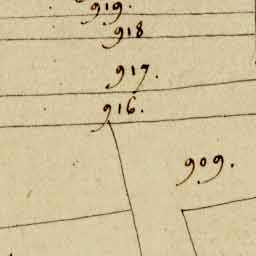 919.
918
917.
916.
909.